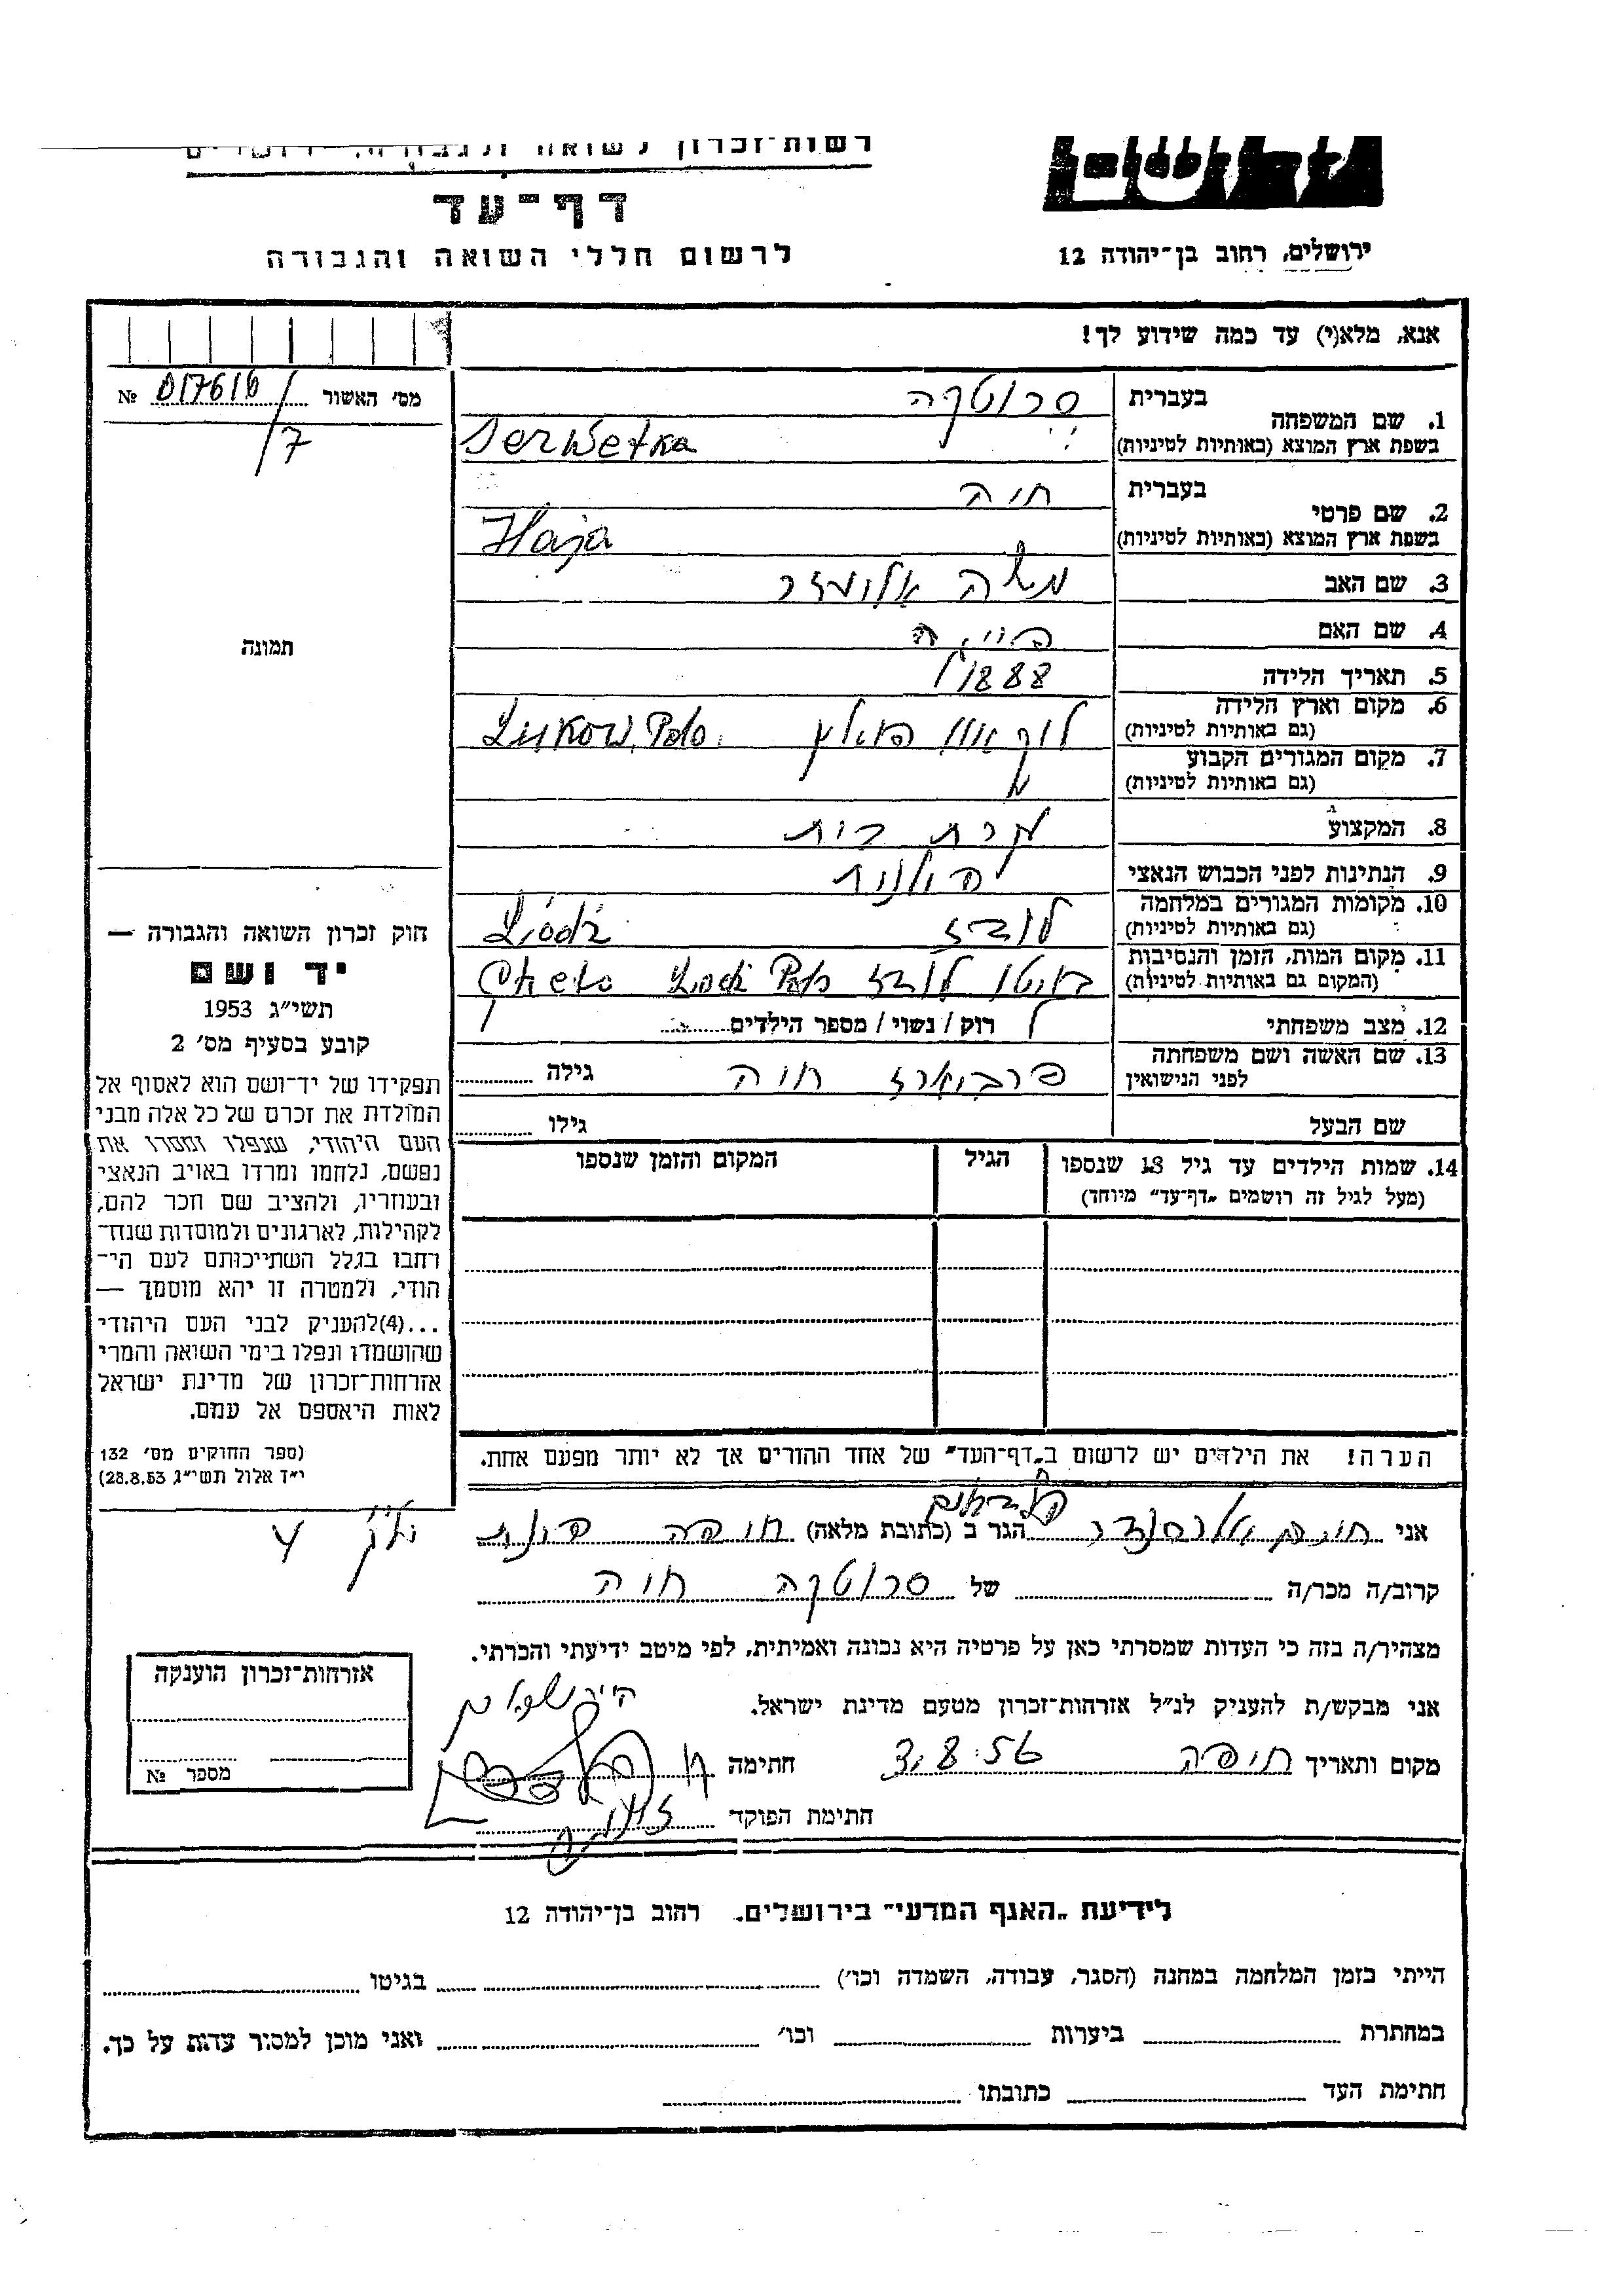 דף־עד
לרשום חללי השואה והגבורה
ירושלים, רחוב בן־יהודה 12
אנא, מלא(י) עד כמה שידוע לך!
מס׳ האשור № 017616/7
1. שם המשפחה
בעברית סרוטקה
בשפת ארץ המוצא (באותיות לטיניות) Serwetka
2. שם פרטי
בעברית חיה
בשפת ארץ המוצא (באותיות לטיניות) Haja
3. שם האב משה
4. שם האם
5. תאריך הלידה 1888
6. מקום וארץ הלידה
(גם באותיות לטיניות) Lukow, Polo.
7. מקום המגורים הקבוע
(גם באותיות לטיניות)
8. המקצוע עקרת בית
9. הנתינות לפני הכבוש הנאצי פולנית
10. מקומות המגורים במלחמה
(גם באותיות לטיניות) לודז Łódź
11. מקום המות, הזמן והנסיבות
(המקום גם באותיות לטיניות) בגיטו לודז
12. מצב משפחתי רוק / נשוי / מספר הילדים
13. שם האשה ושם משפחתה
לפני הנישואין חיה גילה
שם הבעל גילו
14. שמות הילדים עד גיל 18 שנספו
(מעל לגיל זה רושמים „דף־עד” מיוחד)
הגיל
המקום והזמן שנספו
הערה! את הילדים יש לרשום ב„דף־העד” של אחד ההורים אך לא יותר מפעם אחת.
תמונה
חוק זכרון השואה והגבורה —
יד ושם
תשי״ג 1953
קובע בסעיף מס׳ 2
תפקידו של יד־ושם הוא לאסוף אל
המולדת את זכרם של כל אלה מבני
העם היהודי, שנפלו ומסרו את
נפשם, נלחמו ומרדו באויב הנאצי
ובעוזריו, ולהציב שם וזכר להם,
לקהילות, לארגונים ולמוסדות שנח־
רבו בגלל השתייכותם לעם הי־
הודי, ולמטרה זו יהא מוסמך —
...(4)להעניק לבני העם היהודי
שהושמדו ונפלו בימי השואה והמרי
אזרחות־זכרון של מדינת ישראל
לאות היאספם אל עמם.
(ספר החוקים מס׳ 132
י״ד אלול תשי״ג 28.8.53)
אני חיים הגר ב (כתובת מלאה) חיפה
קרוב/ה מכר/ה של סרוטקה חיה
מצהיר/ה בזה כי העדות שמסרתי כאן על פרטיה היא נכונה ואמיתית, לפי מיטב ידיעתי והכרתי.
אני מבקש/ת להעניק לנ״ל אזרחות־זכרון מטעם מדינת ישראל.
מקום ותאריך חיפה 3.8.56 חתימה
חתימת הפוקד
אזרחות־זכרון הוענקה
מספר №
לידיעת „האגף המדעי” בירושלים, רחוב בן־יהודה 12
הייתי בזמן המלחמה במחנה (הסגר, עבודה, השמדה וכו׳) בגיטו
במחתרת ביערות וכו׳ ואני מוכן למסור עדות על כך.
חתימת העד כתובתו